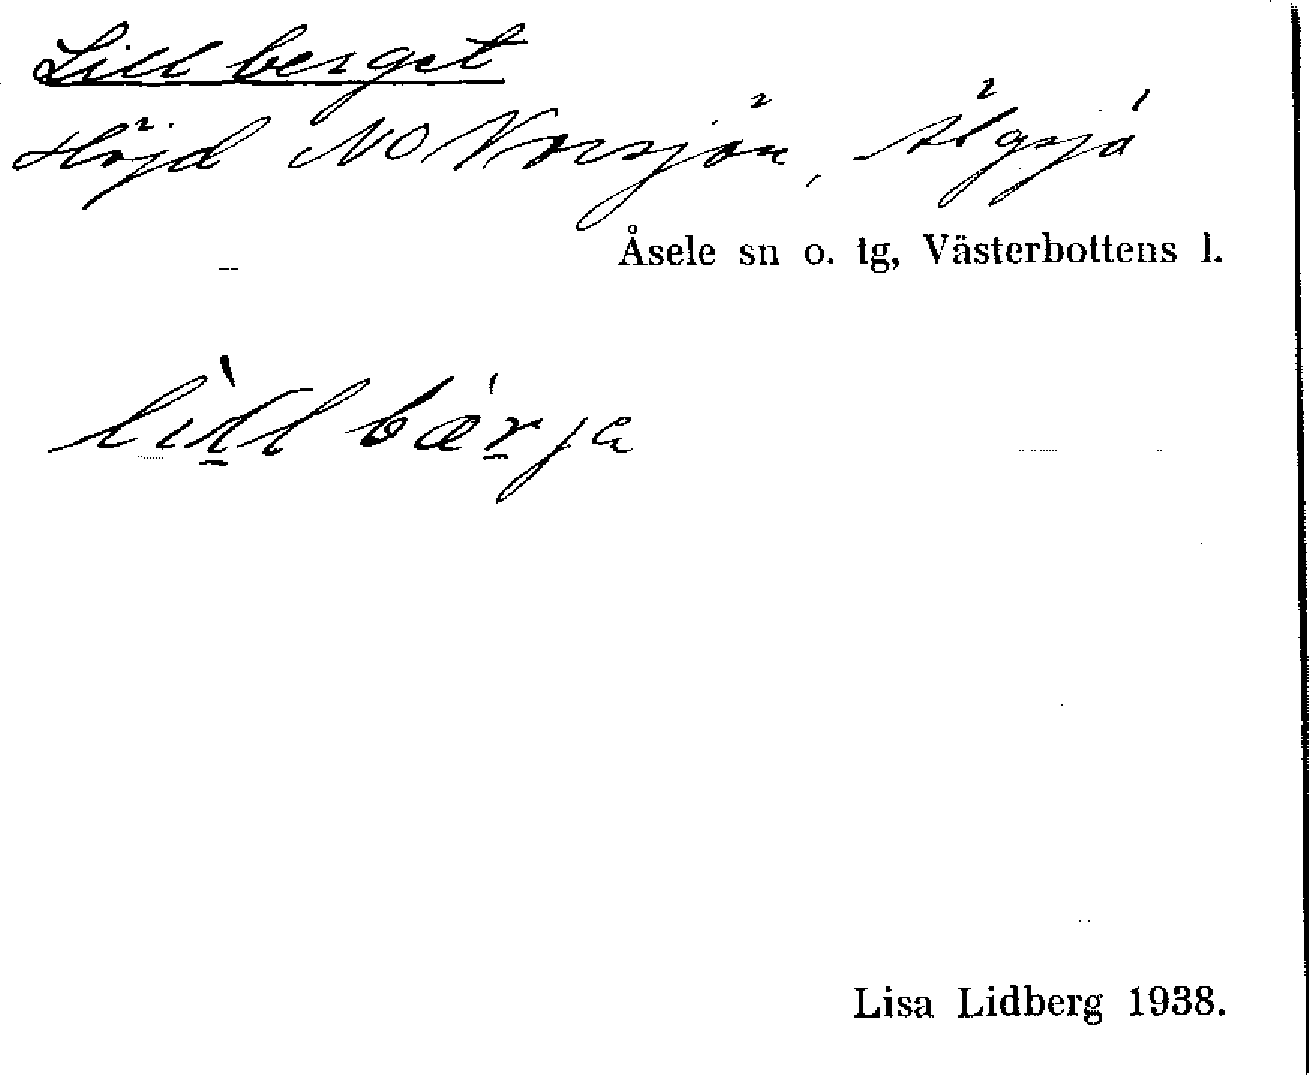 Lillberget
Höjd NO Norsjön, Älgsjö
Åsele sn o. tg, Västerbottens l.
Lisa Lidberg 1938.